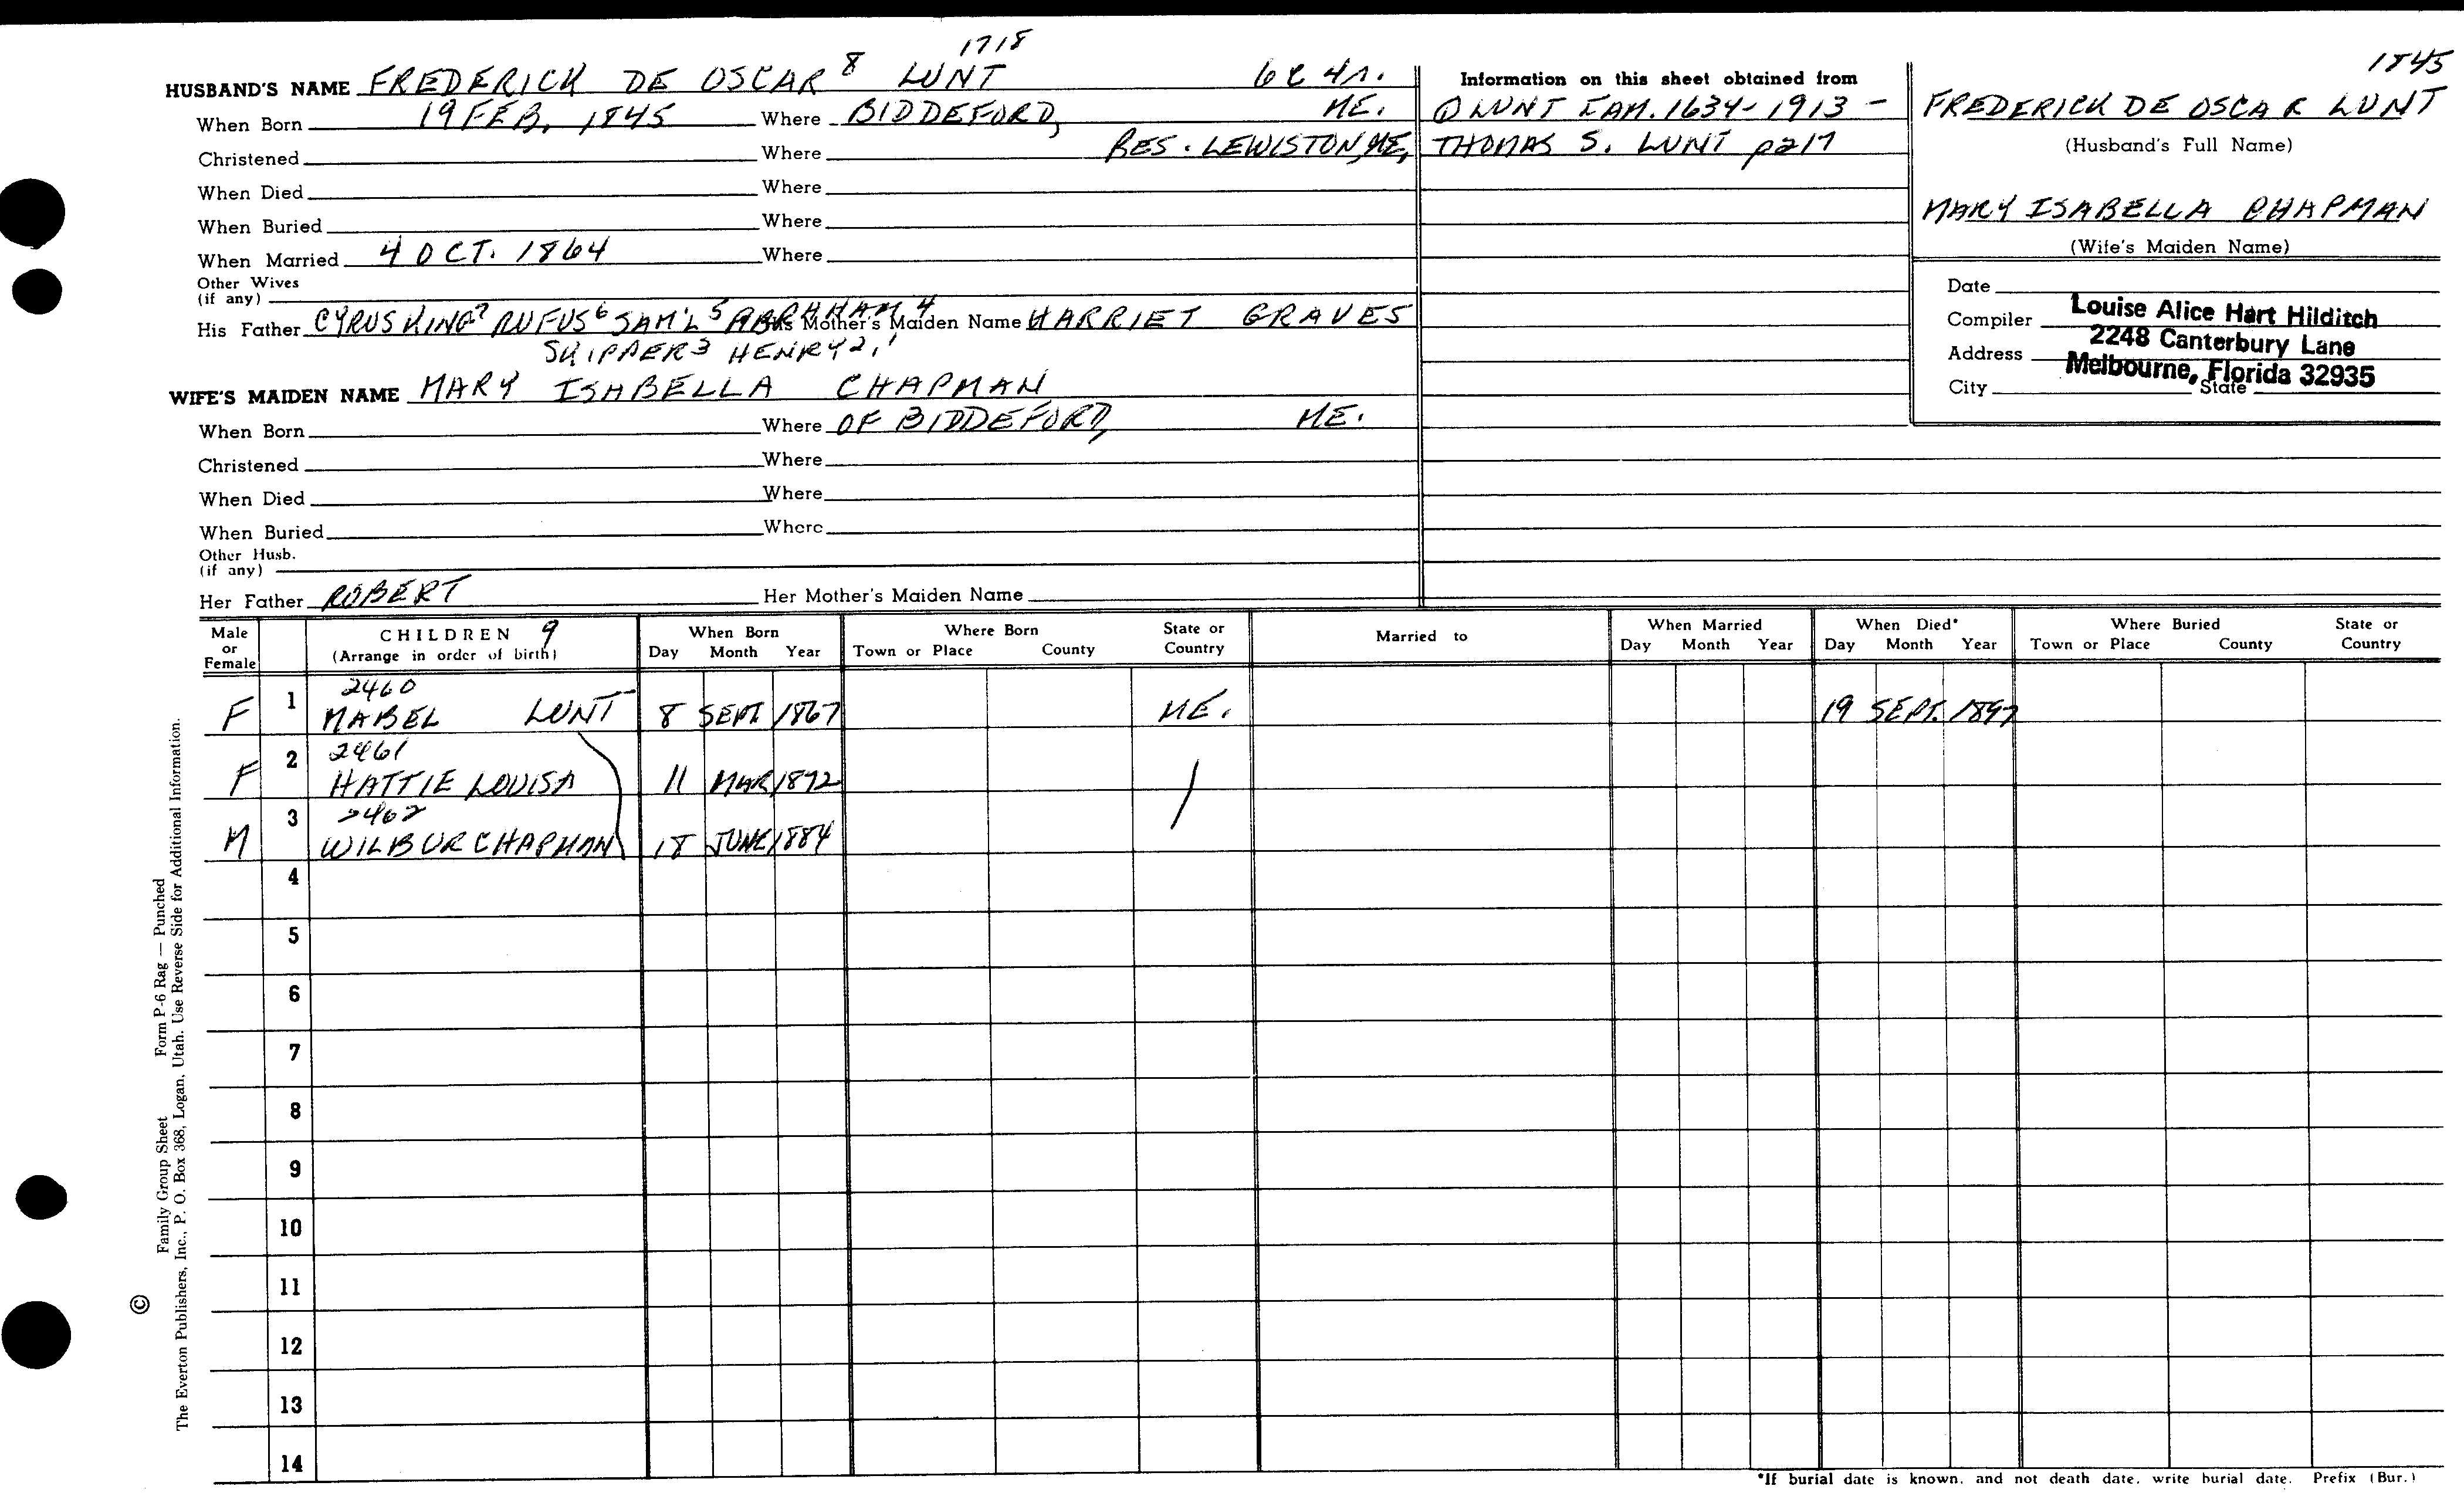 1718
1845
HUSBAND'S NAME FREDERICK DE OSCAR 8 LUNT
When Born 19 FEB, 1845 Where BIDDEFORD, ME.
Christened Where RES. LEWISTON, ME,
When Died Where
When Buried Where
When Married 4 OCT. 1864 Where
Other Wives
(if any)
His Father CYRUS KING 7 RUFUS 6 SAM'L 5 ABRAHAM 4 His Mother's Maiden Name HARRIET GRAVES
SKIPPER 3 HENRY 2, 1
WIFE'S MAIDEN NAME MARY ISABELLA CHAPMAN
When Born Where OF BIDDEFORD, ME.
Christened Where
When Died Where
When Buried Where
Other Husb.
(if any)
Her Father ROBERT Her Mother's Maiden Name
Information on this sheet obtained from
LUNT FAM. 1634-1913 -
THOMAS S. LUNT p217
FREDERICK DE OSCAR LUNT
(Husband's Full Name)
MARY ISABELLA CHAPMAN
(Wife's Maiden Name)
Date
Compiler Louise Alice Hart Hilditch
Address 2248 Canterbury Lane
City State Melbourne, Florida 32935
Male or Female CHILDREN 9 (Arrange in order of birth) When Born Day Month Year Where Born Town or Place County State or Country Married to When Married Day Month Year When Died* Day Month Year Where Buried Town or Place County State or Country
2460
F 1 MABEL LUNT 8 SEPT 1867 ME. 19 SEPT. 1897
2461
F 2 HATTIE LOUISA 11 MAR 1872
2462
M 3 WILBUR CHAPMAN 18 JUNE 1884
4
5
6
7
8
9
10
11
12
13
14
*If burial date is known, and not death date, write burial date. Prefix (Bur.)
© Family Group Sheet Form P-6 Rag — Punched
The Everton Publishers, Inc., P. O. Box 368, Logan, Utah. Use Reverse Side for Additional Information.